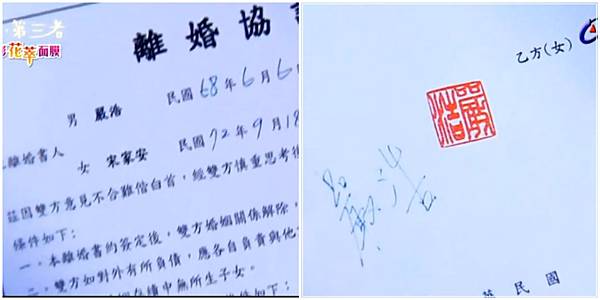 第三者
花萃面膜
離婚協
男 嚴浩 民國 68 年 6 月 6
離婚書人
女 宋家安 民國 72 年 9 月 18
茲因雙方意見不合難偕白首，經雙方慎重思考後
條件如下：
一、本離婚書的簽定後，雙方婚姻關係解除，
二、雙方如對外有所負債，應各自負責與他
存續中無所生子女。
乙方(女)
嚴浩
嚴浩
民國